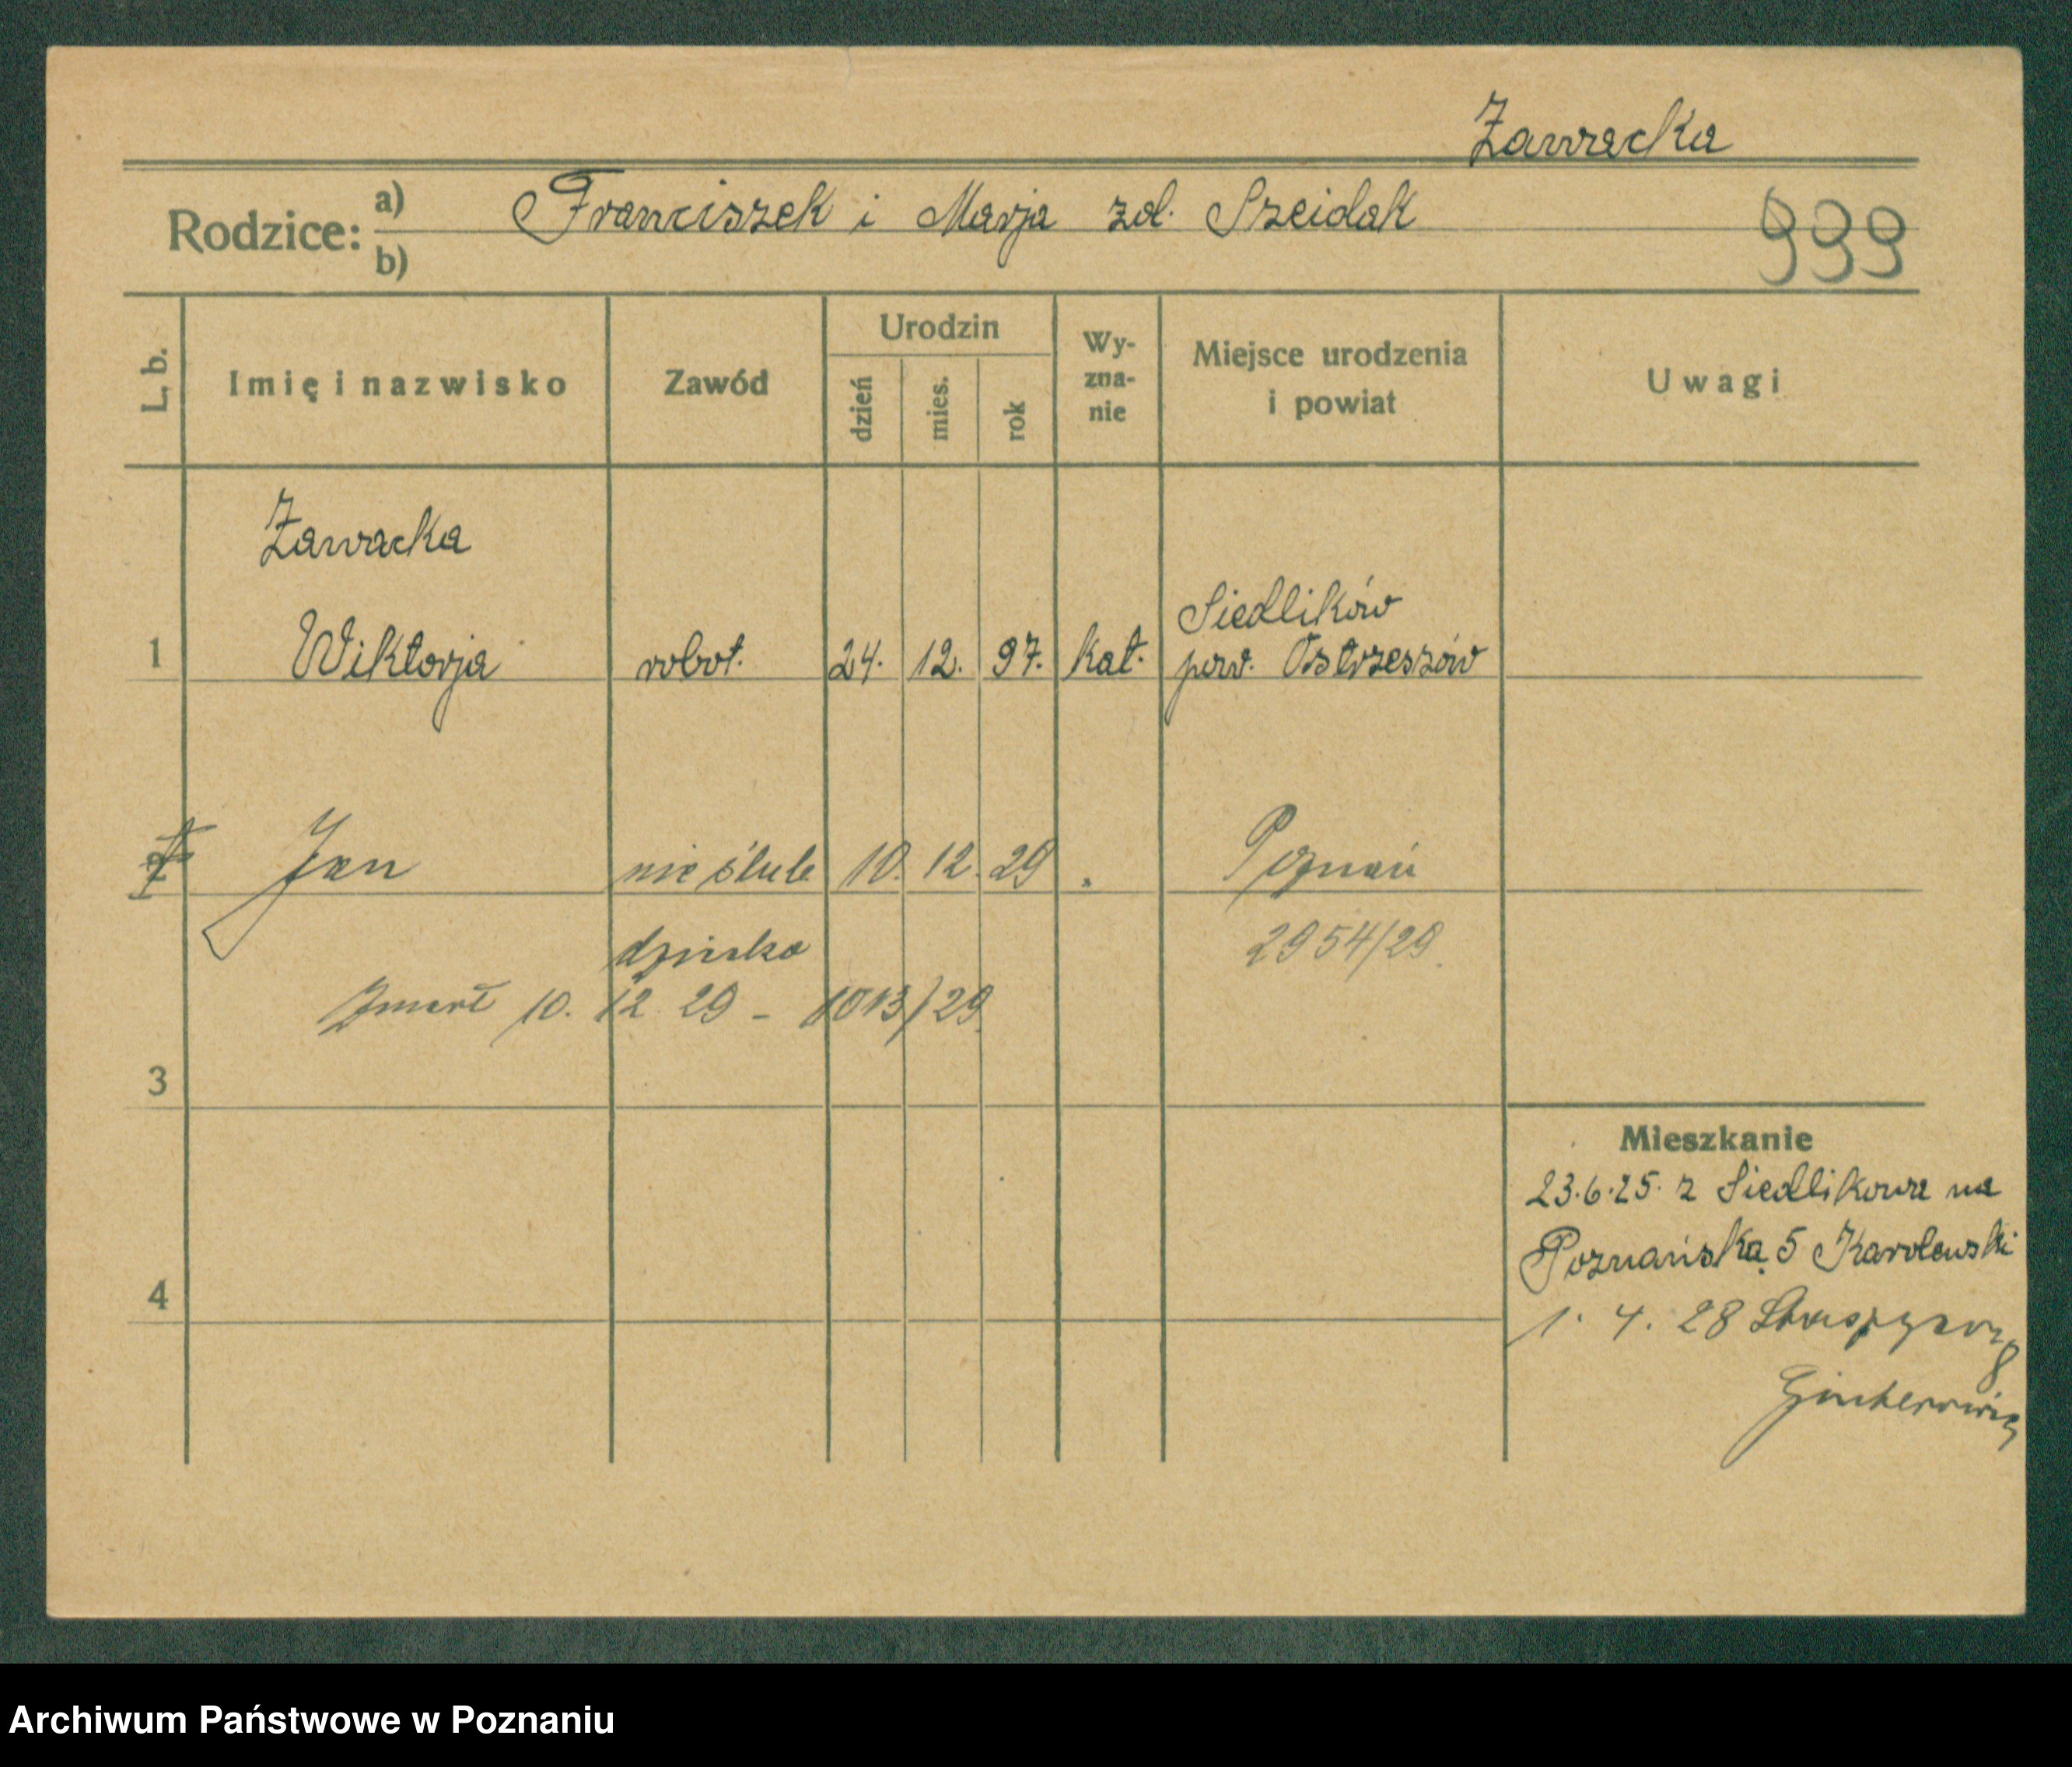 Zawacka
Rodzice: a) Franciszek i Marja zd. Szeidak
b)
999
L. b.
Imię i nazwisko
Zawód
Urodzin
dzień
mies.
rok
Wy-
zna-
nie
Miejsce urodzenia
i powiat
Uwagi
Zawacka
Siedlików
1 Wiktorja robot. 24. 12. 97. kat. pow. Ostrzeszów
2 Jan nie ślub 10. 12. 29 Poznań
dziecko 2954/29.
Zmarł 10. 12 29 - 1013/29.
3
4
Mieszkanie
23.6.25. z Siedlikowa na
Poznańska 5 Karolewski
1. 4. 28
Archiwum Państwowe w Poznaniu